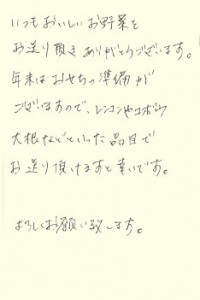 いつもおいしいお野菜を
お送り頂きありがとうございます。
年末はおせちの準備が
ございますので、レンコンやゴボウ
大根などといった品目で
お送り頂けますと幸いです。
よろしくお願い致します。